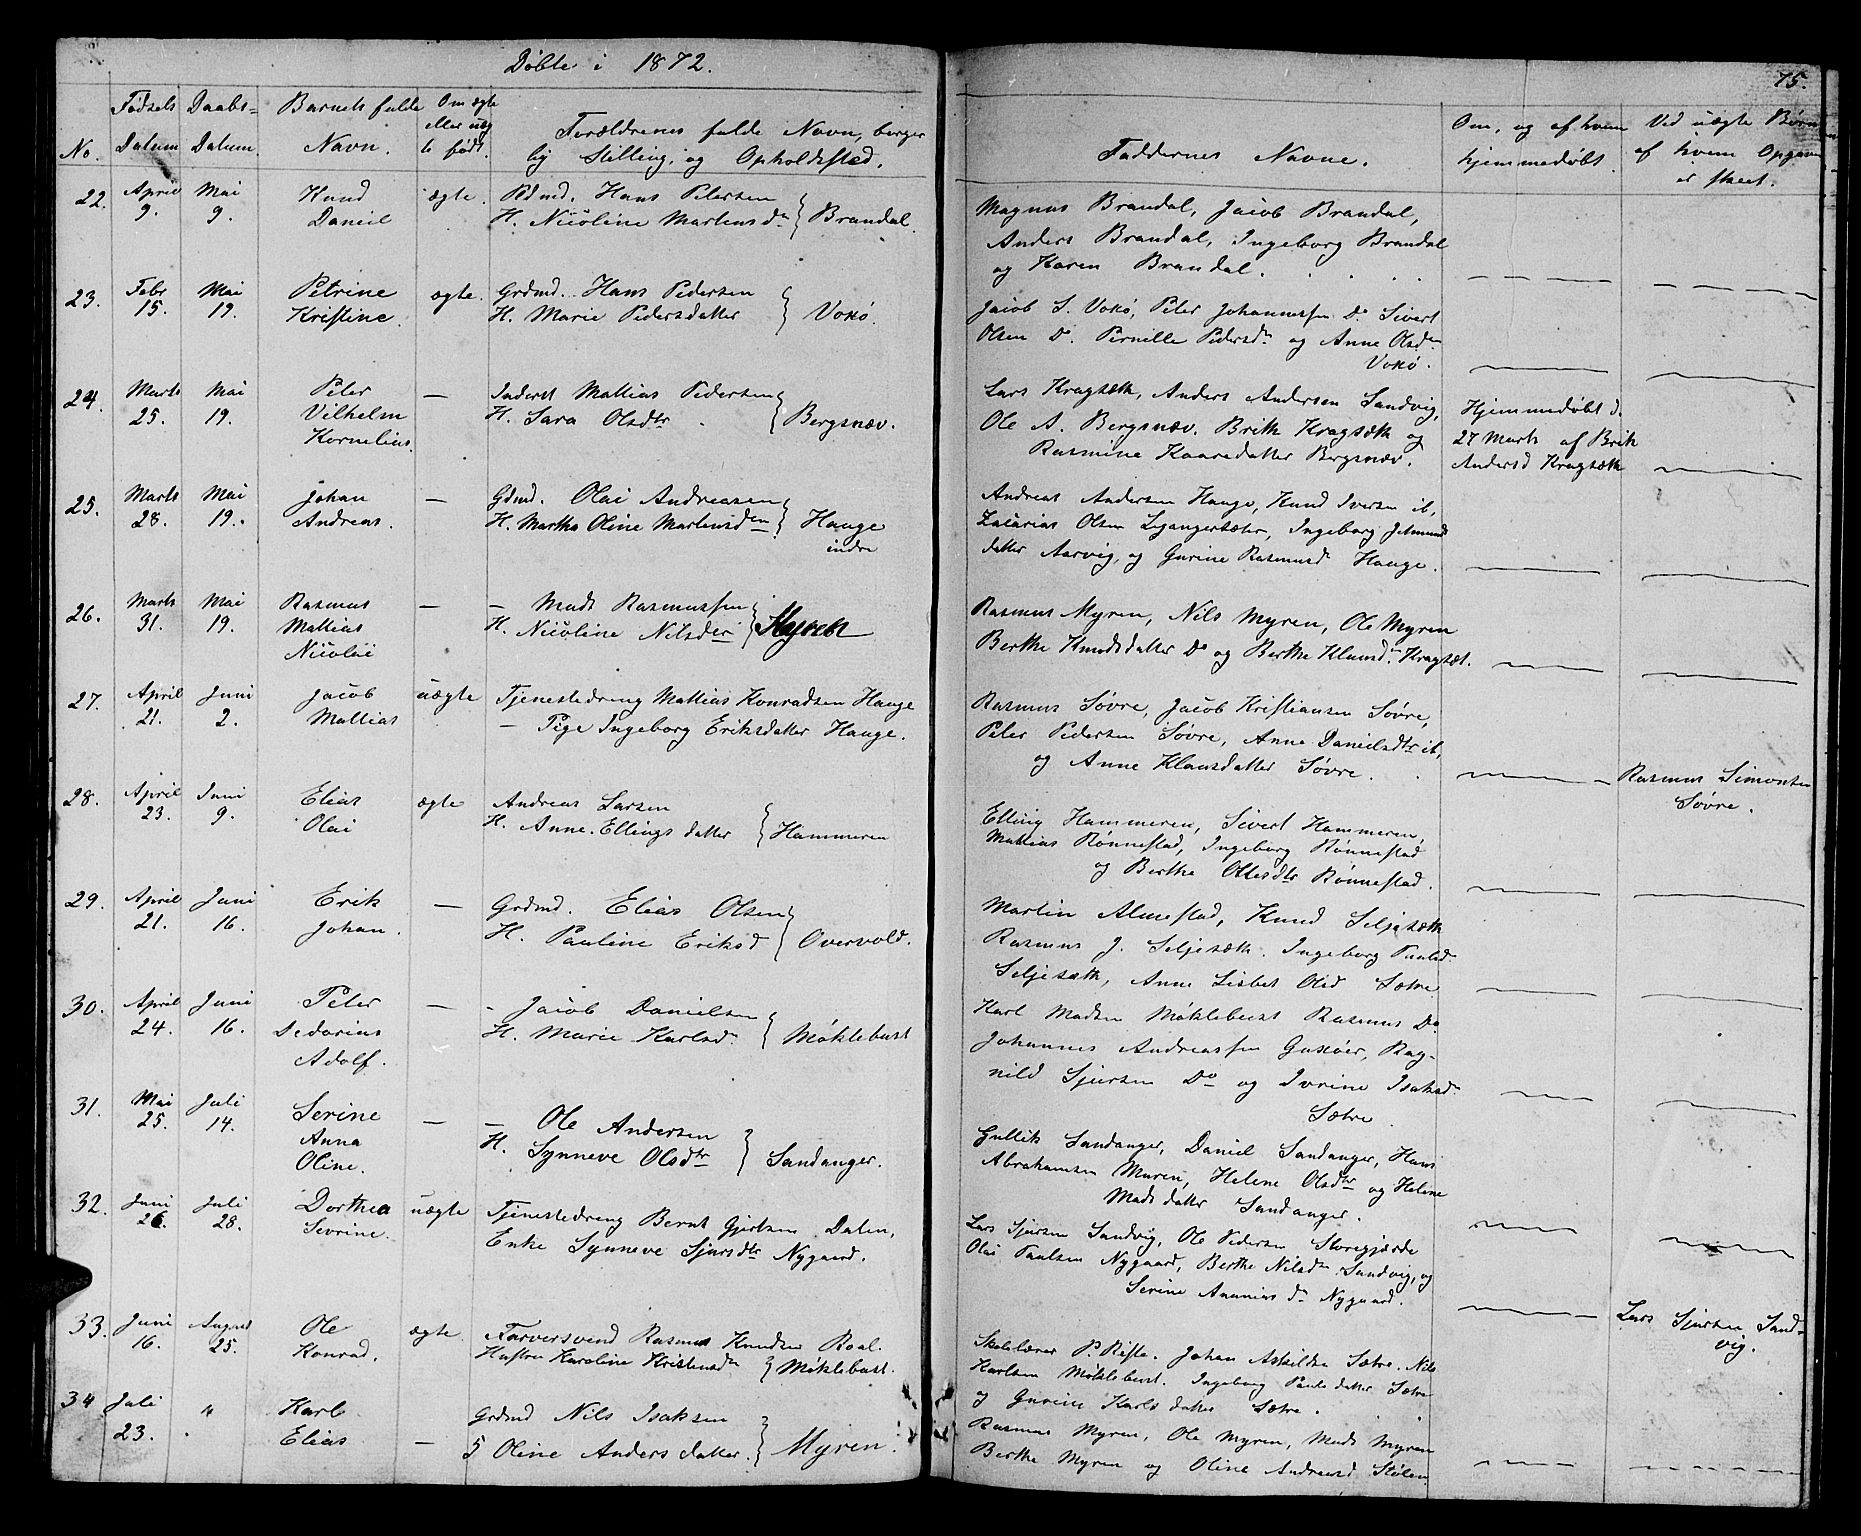 Döbte i 1872.
75.
No.
Fødsels Datum
Daabs-Datum.
Barnets fulde Navn.
Om ægte eller uægte født.
Forældrenes fulde Navn, borgerlig Stilling, og Opholdssted.
Faddernes Navne.
Om, og af hvem hjemmedøbt.
Ved uægte Børn af hvem Opgaven er skeet.
22. April 9. Mai 9. Knud Daniel ægte. Hans Petersen
H. Nicoline Martensdr Brandal.
Magnus Brandal, Jacob Brandal,
Anders Brandal, Ingeborg Brandal
og Karen Brandal.
23. Febr 15. Mai 19. Petrine Kristine. ægte. Grdmd. Hans Pedersen
H. Marie Pedersdatter Voksø.
Jacob S. Voksø, Peter Johannessen Do Sivert
Olsen Do. Pernille Pedersdr og Anne Olsdr
Voksø.
24. Marts 25. Mai 19. Peter Vilhelm Kornelius. — Inderst Mattias Pedersen
H. Sara Olsdtr Bergsnæv.
Lars Kragsæth, Anders Andersen Sandvig,
Ole A. Bergsnæv, Brith Kragsæth og
Rasmine Kaaredatter Bergsnæv.
Hjemmedøbt d.
27 Marts af Brith
Andersd Kragsæth
25. Marts 28. Mai 19. Johan Andreas. — Gdmd. Olai Andreasen
H. Martha Oline Martinsden Hauge
indre
Andreas Andersen Hauge, Knud Iversen ib,
Zacarias Olsen, Ingeborg
datter Aarvig, og Gurine Rasmusd Hauge.
26. Marts 31. Mai 19. Rasmus Mattias Nicolai — — Mads Rasmussen
H. Nicoline Nilsdtr Myren
Rasmus Myren, Nils Myren, Ole Myren
Berthe Knudsdatter Do og Berthe Klausdr Kragsæt.
27. April 21. Juni 2. Jacob Mattias uægte Tjenestedreng Mattias Konradsen Hauge
— Pige Ingeborg Eriksdatter Hauge.
Rasmus Søvre, Jacob Kristiansen Søvre,
Peter Pedersen Søvre, Anne Danielsdtr ib,
og Anne Klausdatter Søvre.
Rasmus Simonsen
Søvre.
28. April 23. Juni 9. Elias Olai ægte Andreas Larsen
H. Anne Ellingsdatter Hammeren
Elling Hammeren, Sivert Hammeren,
Mattias Rønnestad, Ingeborg Rønnestad
og Berthe Ottesdtr Rønnestad.
29. April 21. Juni 16. Erik Johan. — Grdmd. Elias Olsen
H. Pauline Eriksd Overvold.
Martin Almestad, Knud Seljesæth
Rasmus J. Seljesæth. Ingeborg Paulsd
Seljesæth, Anne Lisbet Olsd Sætre
30. April 24. Juni 16. Peter Sedorius Adolf. — - Jacob Danielsen
H. Marie Karlsdr Møklebust
Karl Madsen Møklebust Rasmus Do
Johannes Andreassen, Rag-
nild Sjursen Do og Ivrine Isaksdr
Sætre.
31. Mai 25. Juli 14. Serine Anna Oline. — — Ole Andersen
H. Synneve Olsdtr Sandanger.
Gullik Sandanger, Daniel Sandanger, Hans
Abrahamsen Muren, Helene Olsdtr og Heline
Madsdatter Sandanger.
32. Juni 26. Juli 28. Dorthea Sevrine. uægte Tjenestedreng Bernt Gjertsen Dalen,
Enke Synneve Sjursdtr Nygaard.
Lars Sjursen Sandvig, Ole Pedersen Storegjærde
Olai Paulsen Nygaard, Berthe Nilsdr Sandvig, og
Serine Ananiasdr Nygaard.
Lars Sjursen Sand-
vig.
33. Juni 16. August 25. Ole Konrad. ægte. Farversvend Rasmus Knudsen Roal.
Hustru Karoline Kristensdr Møklebust.
Skolelærer P. Riste. Johan Askildsen Sætre. Nils
Karlsen Møklebust. Ingeborg Paulsdatter Sætre
og Gurine Karlsdatter Sætre.
34 Juli 23. " Karl Elias — Grdmd Nils Isaksen
Oline Andersdatter. Myren.
Rasmus Myren, Ole Myren, Mads Myren
Berthe Myren og Oline Andreasd Stølen